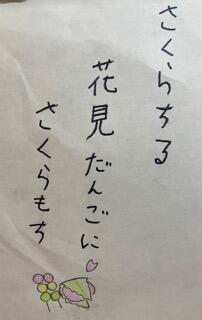 さくらちる
花見だんごに
さくらもち